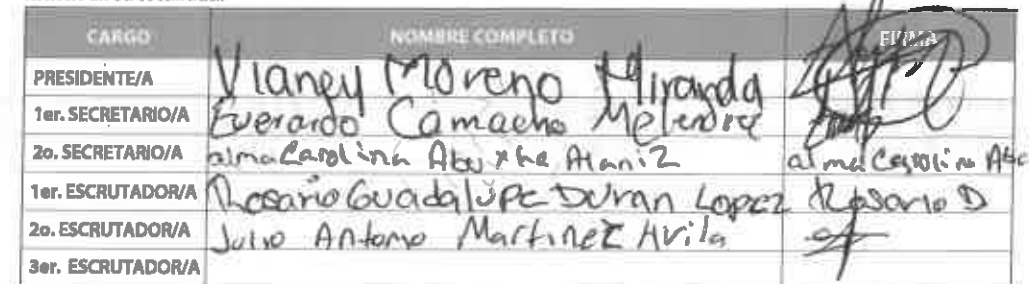 CARGO NOMBRE COMPLETO FIRMA
PRESIDENTE/A Vianey Moreno Miranda
1er. SECRETARIO/A Everardo Camacho Melendrez
2o. SECRETARIO/A alma Carolina Alaniz alma Carolina
1er. ESCRUTADOR/A Rosario Guadalupe Duran Lopez Rosario D
2o. ESCRUTADOR/A Julio Antonio Martinez Avila
3er. ESCRUTADOR/A